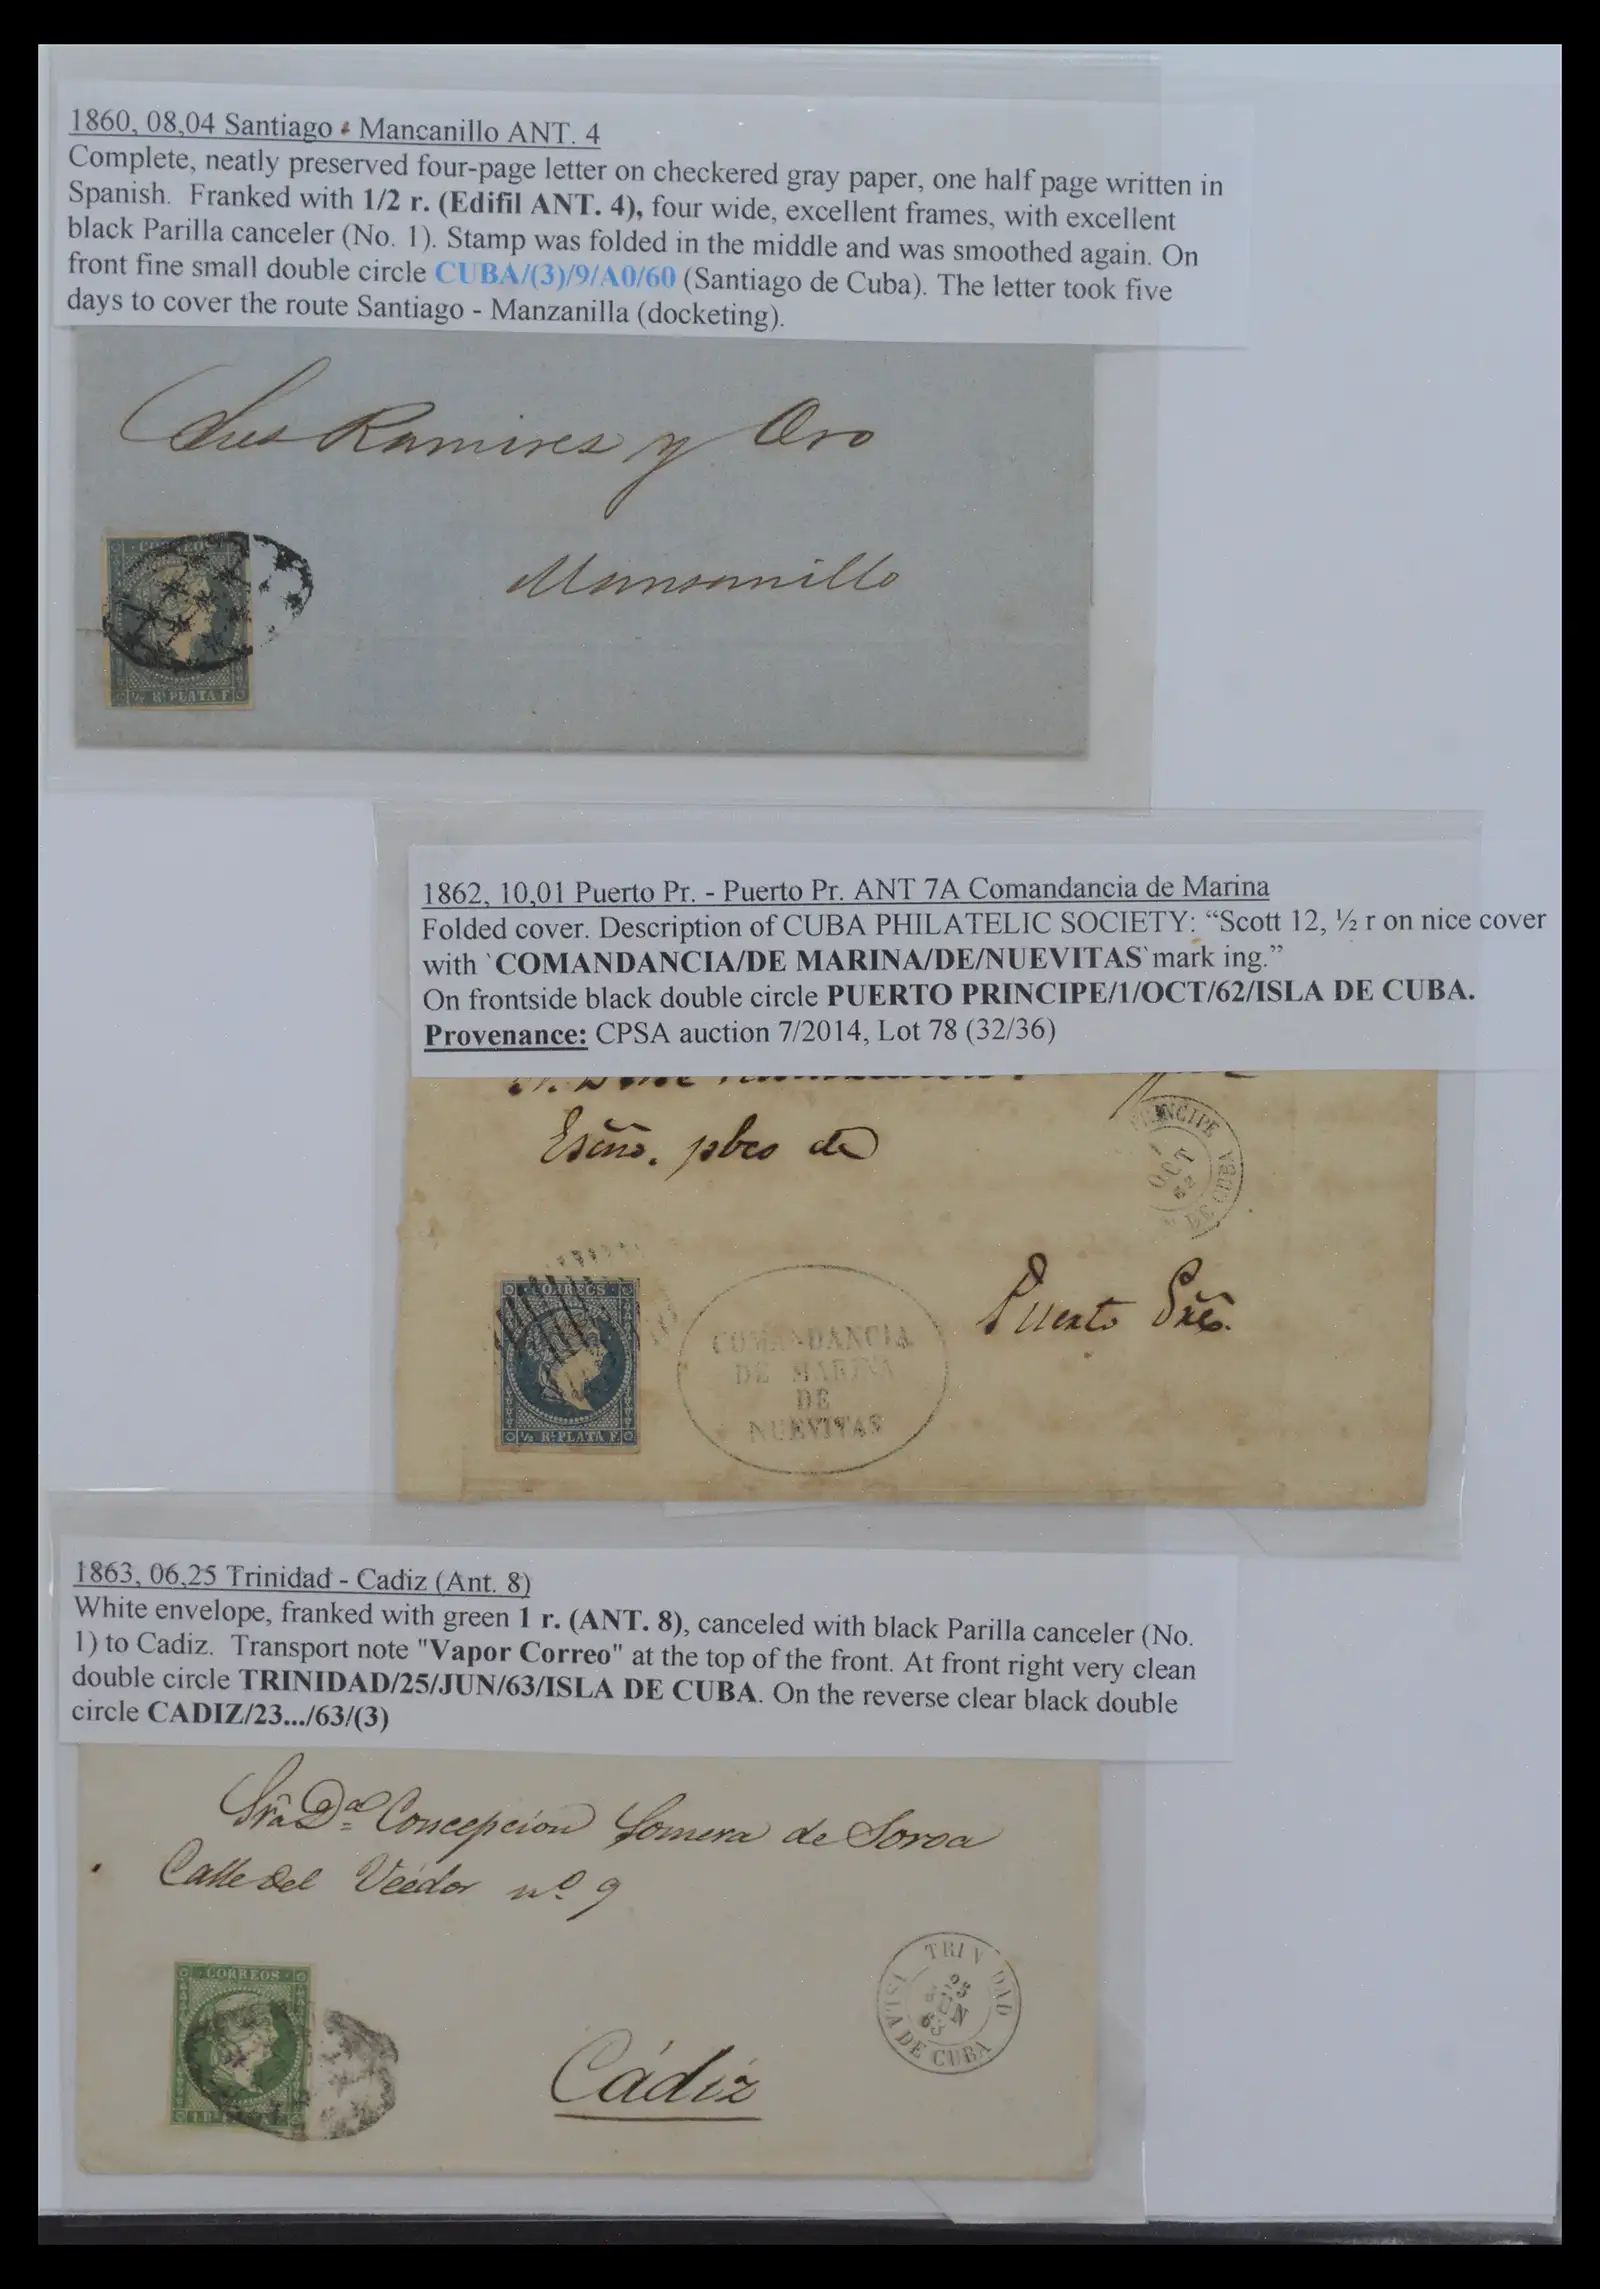 1860, 08,04 Santiago - Mancanillo ANT. 4
Complete, neatly preserved four-page letter on checkered gray paper, one half page written in
Spanish. Franked with 1/2 r. (Edifil ANT. 4), four wide, excellent frames, with excellent
black Parilla canceler (No. 1). Stamp was folded in the middle and was smoothed again. On
front fine small double circle CUBA/(3)/9/A0/60 (Santiago de Cuba). The letter took five
days to cover the route Santiago - Manzanilla (docketing).
Ramires y Oro
Mansanillo
CORREOS
½ Rl. PLATA F.
1862, 10,01 Puerto Pr. - Puerto Pr. ANT 7A Comandancia de Marina
Folded cover. Description of CUBA PHILATELIC SOCIETY: “Scott 12, ½ r on nice cover
with `COMANDANCIA/DE MARINA/DE/NUEVITAS`mark ing.”
On frontside black double circle PUERTO PRINCIPE/1/OCT/62/ISLA DE CUBA.
Provenance: CPSA auction 7/2014, Lot 78 (32/36)
PRINCIPE
1
OCT
62
DE CUBA
Escno. pbco de
CORREOS
½ Rl. PLATA F.
COMANDANCIA
DE MARINA
DE
NUEVITAS
Puerto Pre.
1863, 06,25 Trinidad - Cadiz (Ant. 8)
White envelope, franked with green 1 r. (ANT. 8), canceled with black Parilla canceler (No.
1) to Cadiz. Transport note "Vapor Correo" at the top of the front. At front right very clean
double circle TRINIDAD/25/JUN/63/ISLA DE CUBA. On the reverse clear black double
circle CADIZ/23.../63/(3)
Sra Da Concepcion Gomera de Soroa
Calle del Veédor no. 9
CORREOS
TRINIDAD
25
JUN
63
ISLA DE CUBA
Cádiz